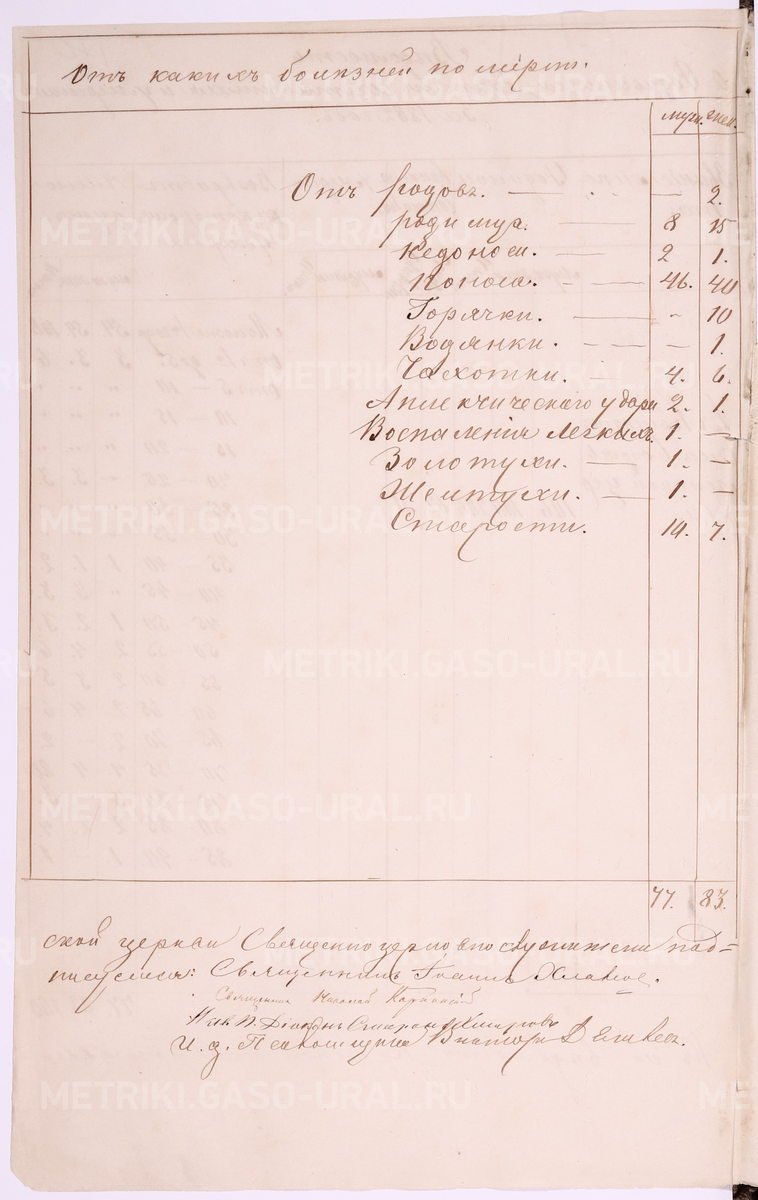 Отъ какихъ болѣзней померли.
муж. жен.
Отъ родовъ. — — 2.
родимца. — 8 15
недоноси. — 2 1.
поноса. — 46. 40
Горячки. — " 10
Водянки. — — 1.
Чахотки. — 4. 6.
Аплекчическаго удара 2. 1.
Воспаленія легкихъ 1. —
Золотухи. — 1. —
Желтухи. — 1. —
Старости. 7.
77. 83.
ской церкви Священно церковно служители под=
писуемся: Священникъ Іоаннъ
Священникъ Николай
Діаконъ
И. д. Псаломщика Викторъ
METRIKI.GASO-URAL.RU